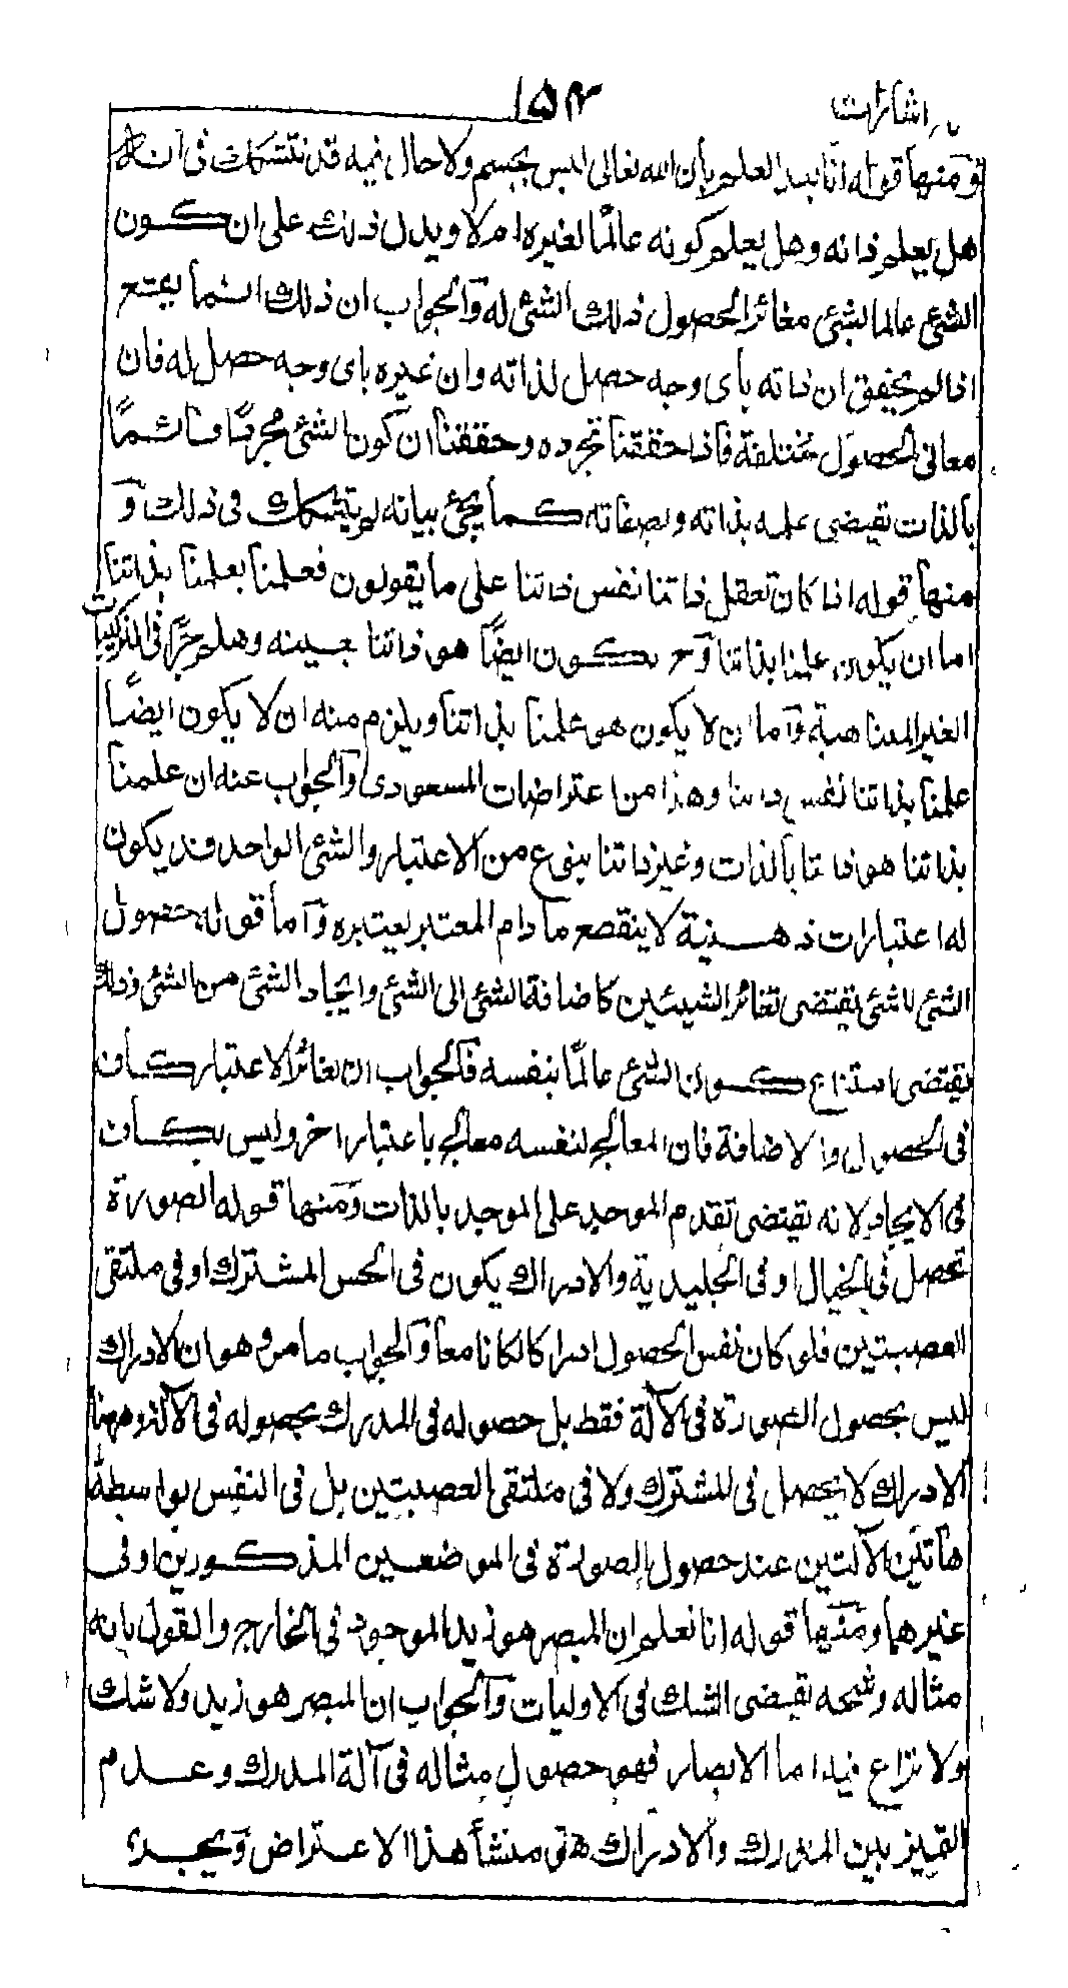 اشارات
١٥٣
ومنها قوله انا بعد العلم بأن الله تعالى ليس بجسم ولا حال فيه قد نتشكك فى انه
هل يعلم ذاته وهل يعلم كونه عالمًا لغيره ام لا ويدل ذلك على ان كون
الشئ عالما لشئ مغائر الحصول ذلك الشئ له والجواب ان ذلك انما يمتنع
اذا لم يتحقق ان ذاته بأى وجه حصل لذاته وان غيره باى وجه حصل له فان
معانى الحصول مختلفة فاذا حققنا تجرده وحققنا ان كون الشئ مجردًا قائمًا
بالذات تقيضى علمه بذاته وبصفاته كما يجئ بيانه لم يتشكك فى ذلك و
منها قوله اذا كان تعقل ذاتنا نفس ذاتنا على ما يقولون فعلمنا بعلمنا بذاتنا
اما ان يكون علمنا بذاتنا وح يكون ايضًا هو ذاتنا بعينه وهلم جرًا فى التركيبات
الغير المتناهية واما ان لا يكون هو علمنا بذاتنا ويلزم منه ان لا يكون ايضًا
علمنا بذاتنا نفس ذاتنا وهذا من اعتراضات المسعودى والجواب عنه ان علمنا
بذاتنا هو ذاتنا بالذات وغير ذاتنا بنوع من الاعتبار والشئ الواحد قد يكون
له اعتبارات ذهنية لا ينقطع ما دام المعتبر يعتبره وأما قوله حصول
الشئ للشئ يقتضى تغائر الشيئين كاضافة الشئ الى الشئ وايجاد الشئ من الشئ وذلك
يقتضى امتناع كون الشئ عالمًا بنفسه فالجواب ان تغائر الاعتبار كاف
فى الحصول والاضافة فان المعالج لنفسه معالج باعتبار اخر وليس بكاف
فى الايجاد لانه يقتضى تقدم الموجد على الموجد بالذات ومنها قوله الصورة
تحصل فى الخيال او فى الجليدية والادراك يكون فى الحس المشترك او فى ملتقى
العصبتين فلو كان نفس الحصول ادراكا لكانا معا والجواب ما مر وهو ان الادراك
ليس بحصول الصورة فى الآلة فقط بل حصوله فى المدرك بحصوله فى الآلة وههنا
الادراك لا يحصل فى المشترك ولا فى ملتقى العصبتين بل فى النفس بواسطة
هاتين الآلتين عند حصول الصورة فى الموضعين المذكورين او فى
غيرهما ومنها قوله انا نعلم ان المبصر هو زيد الموجود فى الخارج والقول بانه
مثاله وشبحه تقيضى الشك فى الاوليات والجواب ان المبصر هو زيد ولا شك
ولا نزاع فيه اما الابصار فهو حصول مثاله فى آلة المدرك وعدم
التميز بين المدرك والادراك هى منشأ هذا الاعتراض ويجد